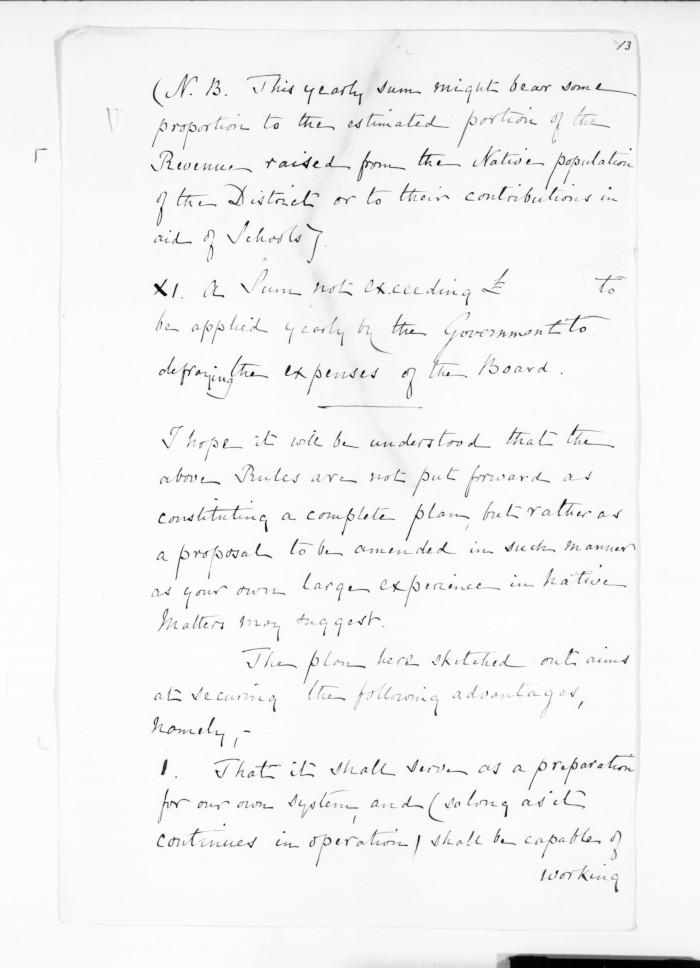 13
(N. B. This yearly sum might bear some
proportion to the estimated portion of the
Revenue raised from the Native population
of the District or to their contributions in
aid of Schools).
XI. A Sum not exceeding £ to
be applied yearly by the Government to
defraying the expenses of the Board.
I hope it will be understood that the
above Rules are not put forward as
constituting a complete plan, but rather as
a proposal to be amended in such manner
as your own large experience in Native
Matters may suggest.
The plan here sketched out aims
at securing the following advantages,
namely,-
1. That it shall serve as a preparation
for our own system, and (so long as it
continues in operation) shall be capable of
working